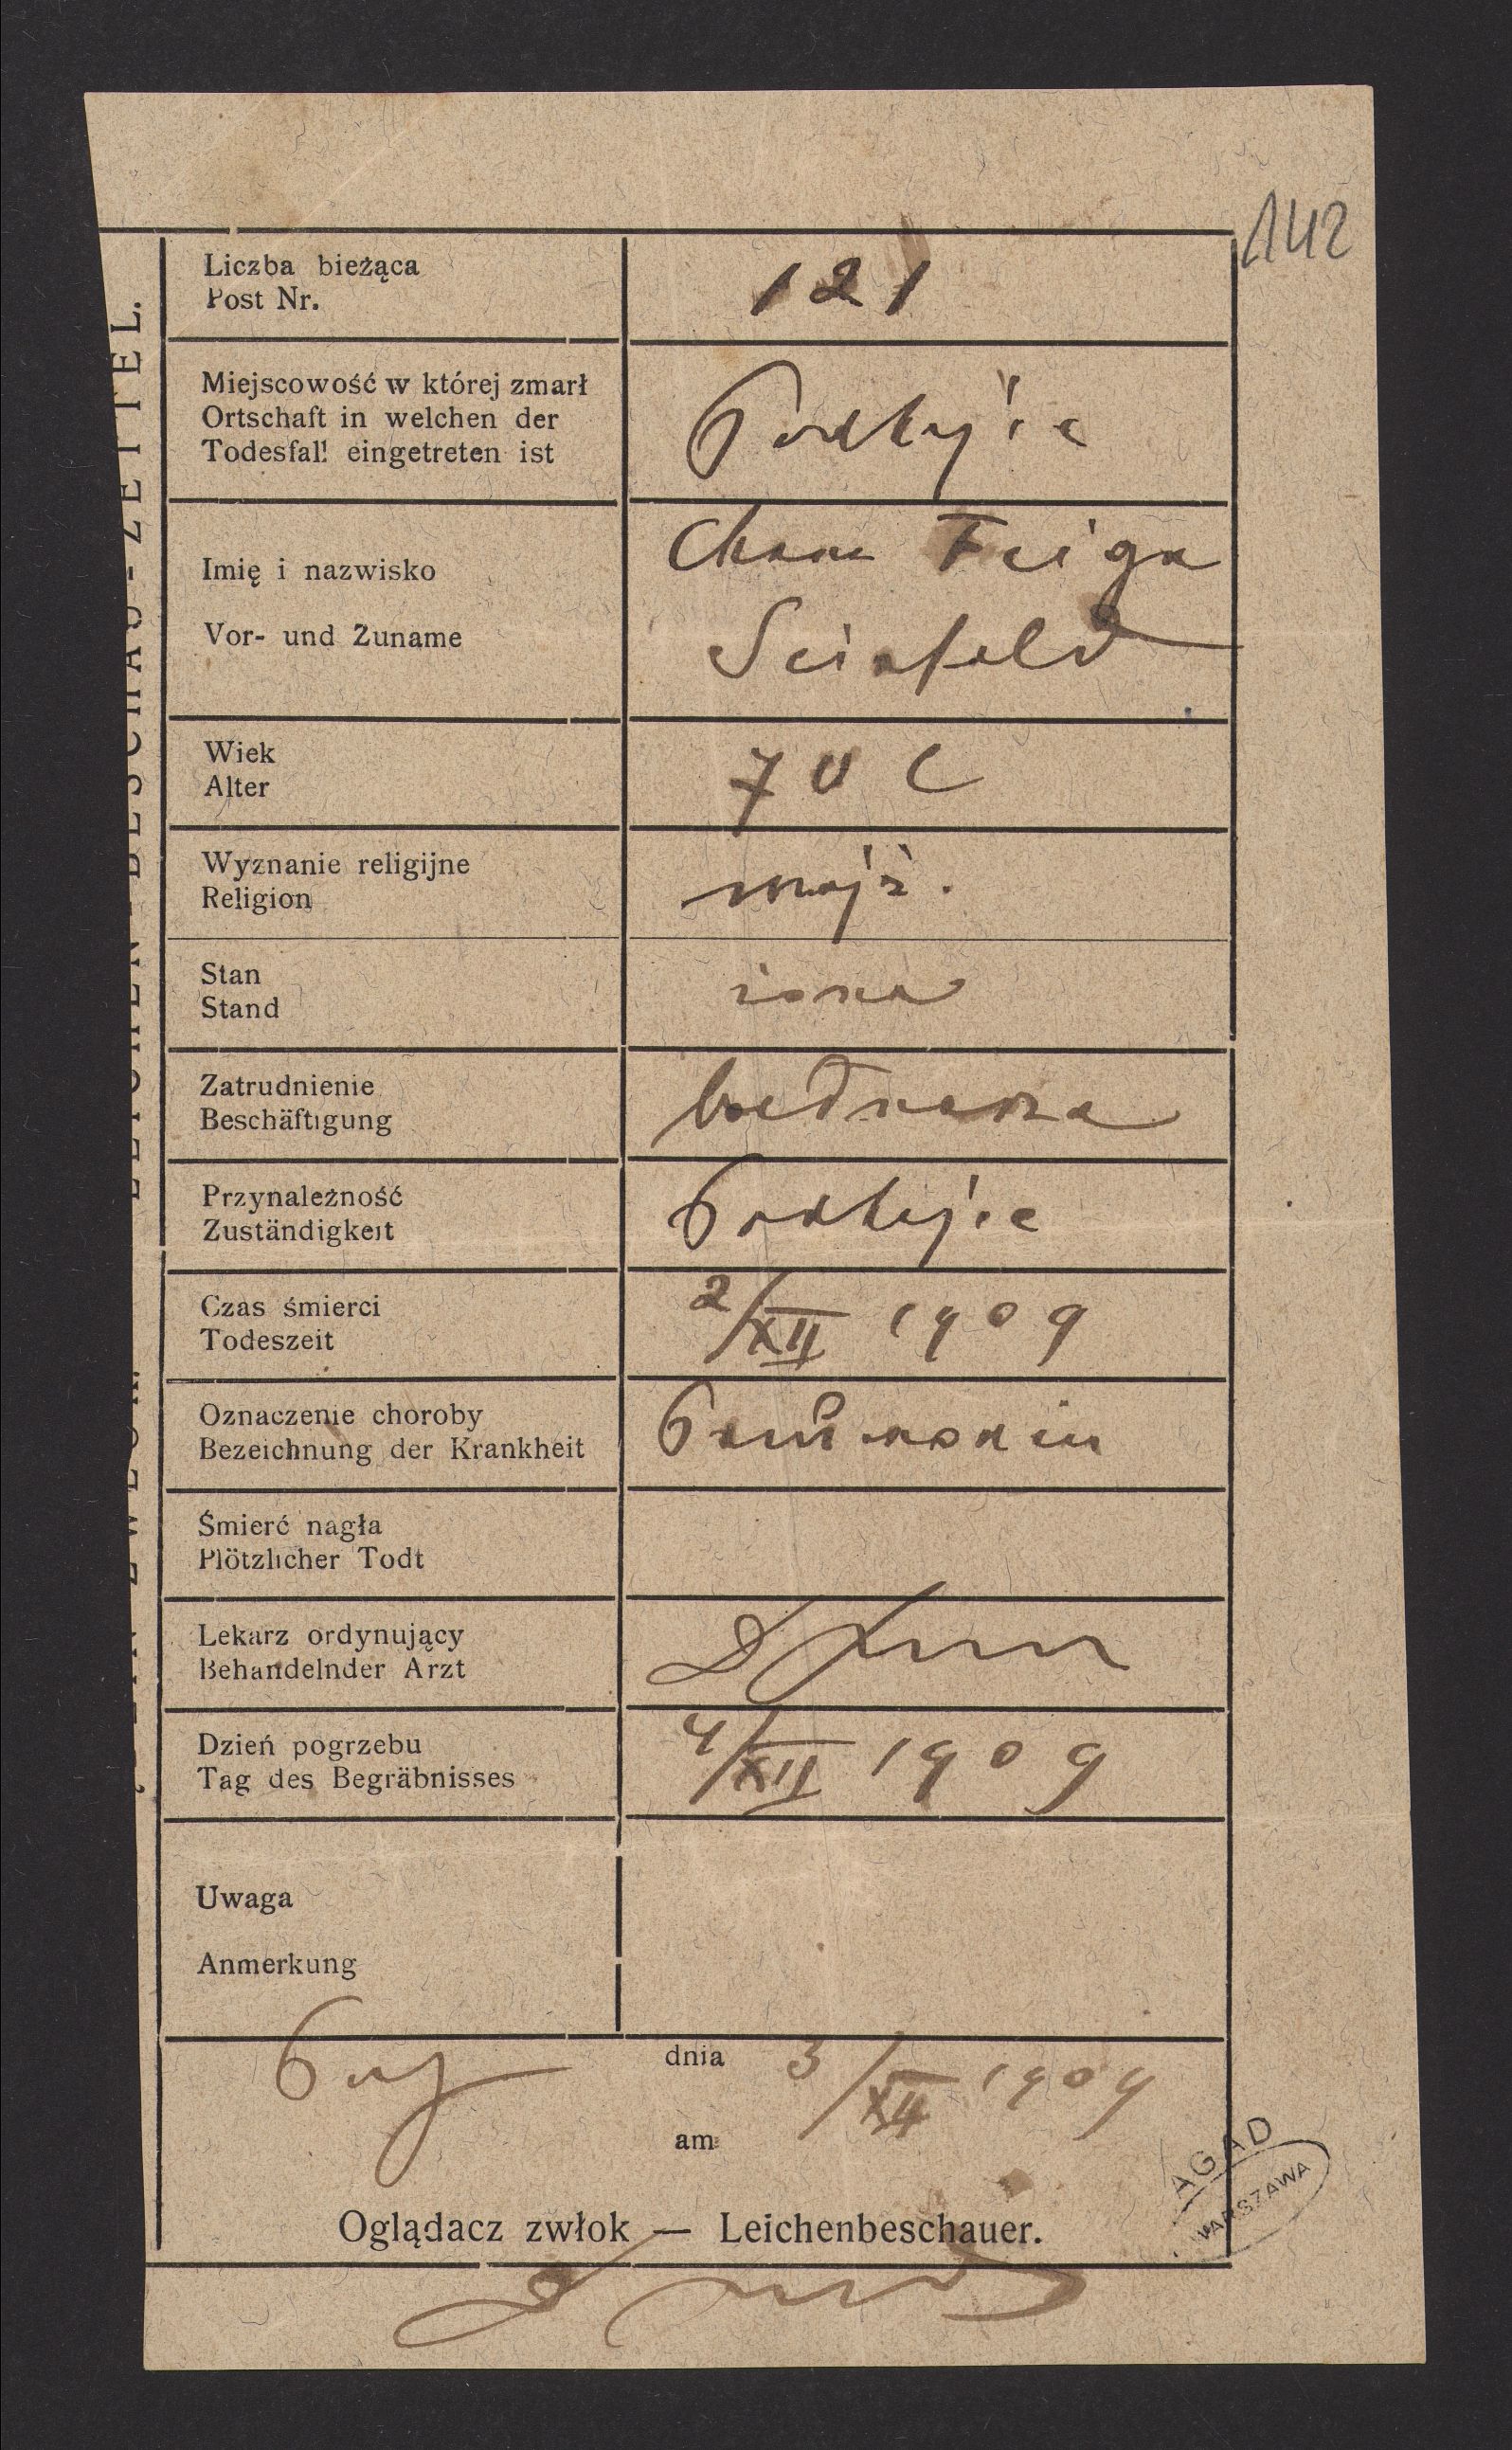 142
Liczba bieżąca
Post Nr.
121
Miejscowość w której zmarł
Ortschaft in welchen der
Todesfall eingetreten ist
Podhajce
Imię i nazwisko
Vor- und Zuname
Chana Feiga
Seinfeld
Wiek
Alter
70 l
Wyznanie religijne
Religion
mojż.
Stan
Stand
żona
Zatrudnienie
Beschäftigung
bednarza
Przynależność
Zuständigkeit
Podhajce
Czas śmierci
Todeszeit
2/XII 1909
Oznaczenie choroby
Bezeichnung der Krankheit
Śmierć nagła
Plötzlicher Todt
Lekarz ordynujący
Behandelnder Arzt
Dzień pogrzebu
Tag des Begräbnisses
4/XII 1909
Uwaga
Anmerkung
dnia 3/XII 1909
am
Oglądacz zwłok — Leichenbeschauer.
AGAD
WARSZAWA